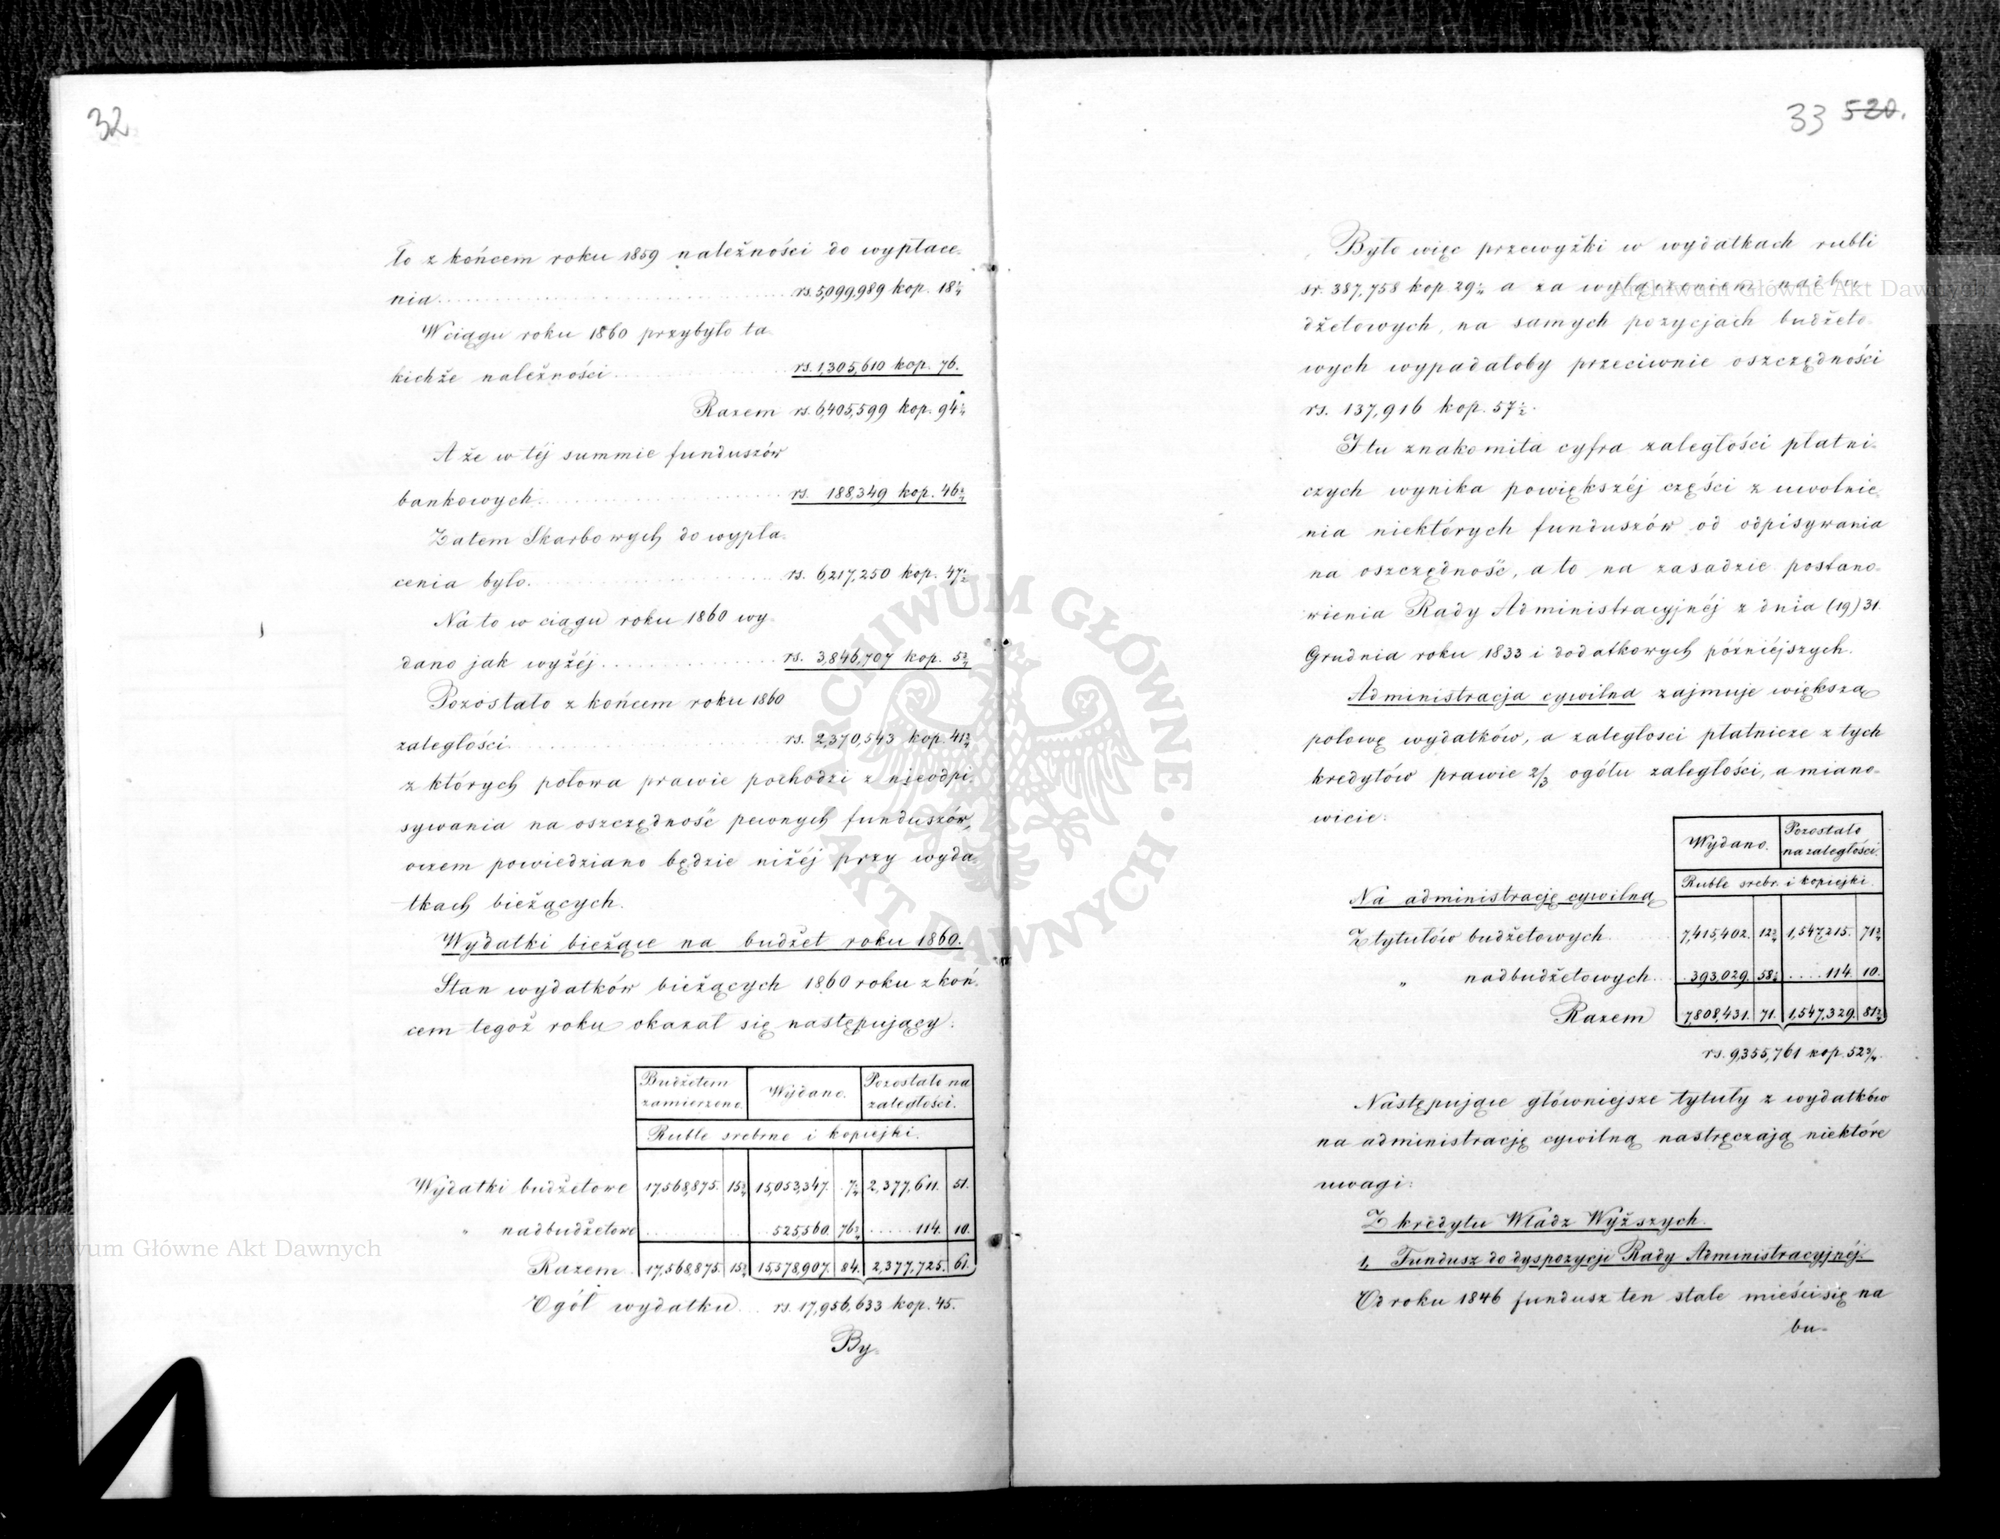 32
ło z końcem roku 1859 należności do wypłace-
nia rs. 5,099,989 kop. 18¼
W ciągu roku 1860 przybyło ta-
kichże należności rs. 1,305,610 kop. 76.
Razem rs. 6,405,599 kop. 94¼
A że w téj summie funduszów
bankowych rs. 188,349 kop. 46¾
Zatem Skarbowych do wypła-
cenia było rs. 6,217,250 kop. 47½
Na to w ciągu roku 1860 wy-
dano jak wyżéj rs. 3,846,707 kop. 5¾
Pozostało z końcem roku 1860
zaległości rs. 2,370,543 kop. 41¾
z których połowa prawie pochodzi z nieodpi-
sywania na oszczędność pewnych funduszów,
oczem powiedziano będzie niżéj przy wyda-
tkach bieżących.
Wydatki bieżące na budżet roku 1860.
Stan wydatków bieżących 1860 roku z koń-
cem tegoż roku okazał się następujący:
Budżetem zamierzono. Wydano. Pozostało na zaległości.
Ruble srebrne i kopiejki.
Wydatki budżetowe 17,568,875. 15¾ 15,053,347. 7¼ 2,377,611. 51.
" nadbudżetowe 525,560. 76¾ 114. 10.
Razem 17,568,875. 15¾ 15,578,907. 84. 2,377,725. 61.
Ogół wydatku rs. 17,956,633 kop. 45.
By-
33 520.
Było więc przewyżki w wydatkach rubli
sr. 387,758 kop. 29¼ a za wyłączeniem nadbu-
dżetowych, na samych pozycjach budżeto-
wych wypadałoby przeciwnie oszczędności
rs. 137,916 kop. 57½.
I tu znakomita cyfra zaległości płatni-
czych wynika powiększéj części z uwolnie-
nia niektórych funduszów od odpisywania
na oszczędność, a to na zasadzie postano-
wienia Rady Administracyjnéj z dnia (19) 31.
Grudnia roku 1833 i dodatkowych późniéjszych.
Administracja cywilna zajmuje większą
połowę wydatków, a zaległości płatnicze z tych
kredytów prawie 2/3 ogółu zaległości, a miano-
wicie:
Wydano. Pozostało na zaległości.
Ruble srebr. i kopiejki.
Na administrację cywilną
Z tytułów budżetowych 7,415,402. 12¾ 1,547,215. 71¾
" nadbudżetowych 393,029. 58¼ 114. 10.
Razem 7,808,431. 71. 1,547,329. 81¾
rs. 9,355,761 kop. 52¾.
Następujące główniejsze tytuły z wydatków
na administrację cywilną nastręczają niektóre
uwagi:
Z kredytu Władz Wyższych.
1. Fundusz do dyspozycji Rady Administracyjnéj.
Od roku 1846 fundusz ten stale mieści się na
bu-
ARCHIWUM GŁÓWNE AKT DAWNYCH
Archiwum Główne Akt Dawnych
Archiwum Główne Akt Dawnych